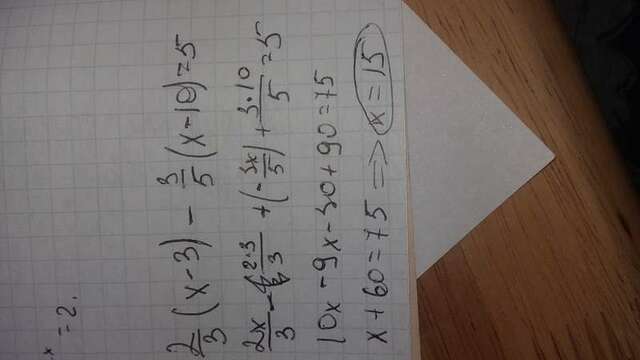 x
= 2.
2/3 (x - 3) - 3/5 (x - 10) = 5
2x/3 - 2·3/3 + (- 3x/5) + 3·10/5 = 5
10x - 9x - 30 + 90 = 75
x + 60 = 75 => x = 15